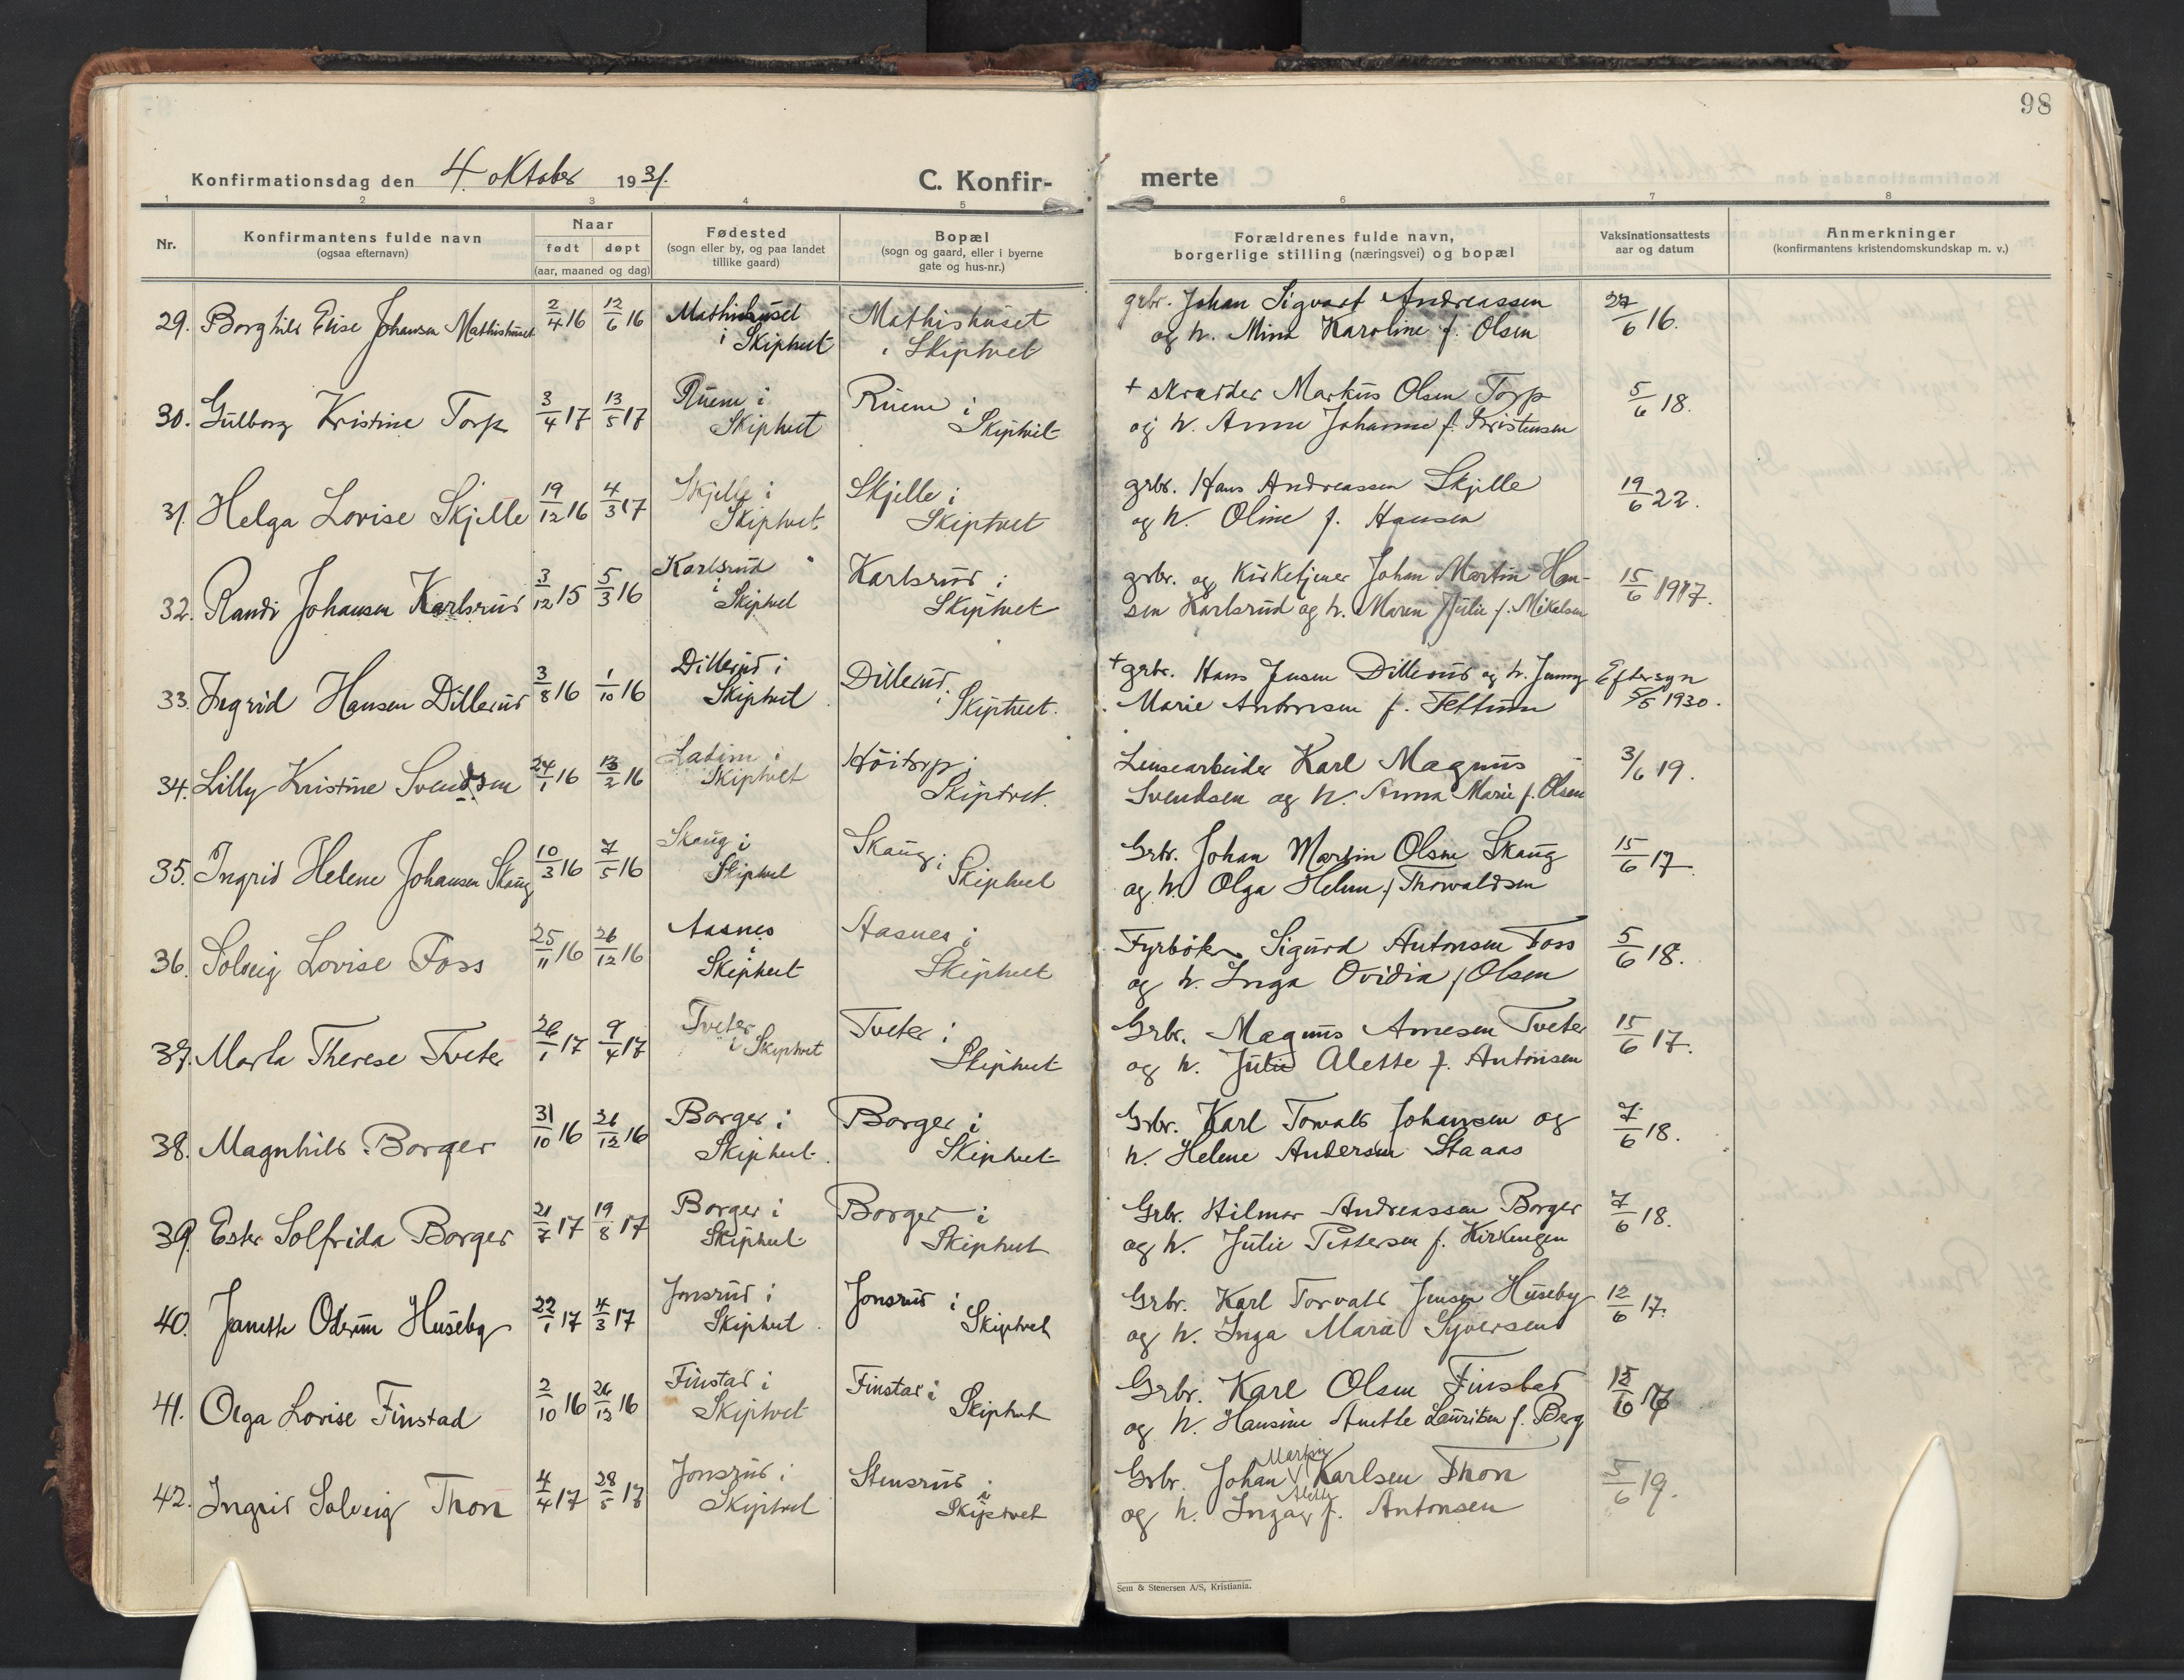 98
Konfirmationsdag den 4. oktober 1931.
C. Konfir-
merte
1 2 3 4 5 6 7 8
Nr.
Konfirmantens fulde navn
(ogsaa efternavn)
Naar
født døpt
(aar, maaned og dag)
Fødested
(sogn eller by, og paa landet
tillike gaard)
Bopæl
(sogn og gaard, eller i byerne
gate og hus-nr.)
Forældrenes fulde navn,
borgerlige stilling (næringsvei) og bopæl
Vaksinationsattests
aar og datum
Anmerkninger
(konfirmantens kristendomskundskap m. v.)
29. Borghild Elise Johansen Mathishuset 2/4 16 12/6 16 Mathishuset i Skiptvet Mathishuset i Skiptvet
grbr. Johan Sigvart Andreassen
og h. Mina Karoline f. Olsen 27/6 16.
30. Gulborg Kristine Torp 3/4 17 13/5 17 Ruene i Skiptvet Ruene i Skiptvet
+ skrædder Markus Olsen Torp
og h. Anne Johanne f. Kristensen 5/6 18.
31. Helga Lovise Skjelle 19/12 16 4/3 17 Skjelle i Skiptvet. Skjelle i Skiptvet
grbr. Hans Andreassen Skjelle
og h. Oline f. Hansen 19/6 22.
32. Randi Johansen Karlsrud 3/12 15 5/3 16 Karlsrud i Skiptvet Karlsrud i Skiptvet
grbr. og Kirketjener Johan Martin Han-
sen Karlsrud og h. Maren Julie f. Mikelsen 15/6 1917.
33. Ingrid Hansen Dillerud 3/8 16 1/10 16 Dillerud i Skiptvet Dillerud i Skiptvet.
+ grbr. Hans Jensen Dillerud og h. Jenny
Marie Antonsen f. Eftersyn
5/5 1930.
34. Lilly Kristine Svendsen 24/1 16 13/2 16 i Skiptvet Höitorp i Skiptvet.
Lensearbeider Karl Magnus
Svendsen og h. Anna Marie f. Olsen 3/6 19.
35. Ingrid Helene Johansen Skaug 10/3 16 7/5 16 Skaug i Skiptvet Skaug i Skiptvet
Grbr. Johan Martin Olsen Skaug
og h. Olga Helene f. Thorvaldsen 15/6 17.
36. Solveig Lovise Foss 25/11 16 26/12 16 Aasnes i Skiptvet Aasnes i Skiptvet
Fyrböter Sigurd Antonsen Foss
og h. Inga Ovidia f. Olsen 5/6 18.
37. Marta Therese Tveter 26/1 17 9/4 17 Tveter i Skiptvet Tveter i Skiptvet
Grbr. Magnus Arnesen Tveter
og h. Julie Alette f. Antonsen 15/6 17.
38. Magnhild Borger 31/10 16 26/12 16 Borger i Skiptvet. Borger i Skiptvet
Grbr. Karl Torvald Johansen og
h. Helene Andersen Staaas 7/6 18.
39. Ester Solfrida Borger 21/7 17 19/8 17 Borger i Skiptvet Borger i Skiptvet
Grbr. Hilmar Andreassen Borger
og h. Julie Pettersen f. Kirkengen 7/6 18.
40. Janette Huseby 22/1 17 4/3 17 Jonsrud i Skiptvet. Jonsrud i Skiptvet
Grbr. Karl Torvald Jensen Huseby
og h. Inga Marie Syversen 12/6 17.
41. Olga Lovise Finstad 2/10 16 26/12 16 Finstad i Skiptvet Finstad i Skiptvet
Grbr. Karl Olsen Finstad
og h. Hansine Anette Lauritsen f. Berg
42. Ingrid Solveig Thon 4/4 17 28/5 17 Jonsrud i Skiptvet Stensrud i Skiptvet
Grbr. Johan Martin Karlsen Thon
og h. Inga Alette f. Antonsen 5/6 19.
Sem & Stenersen A/S, Kristiania.